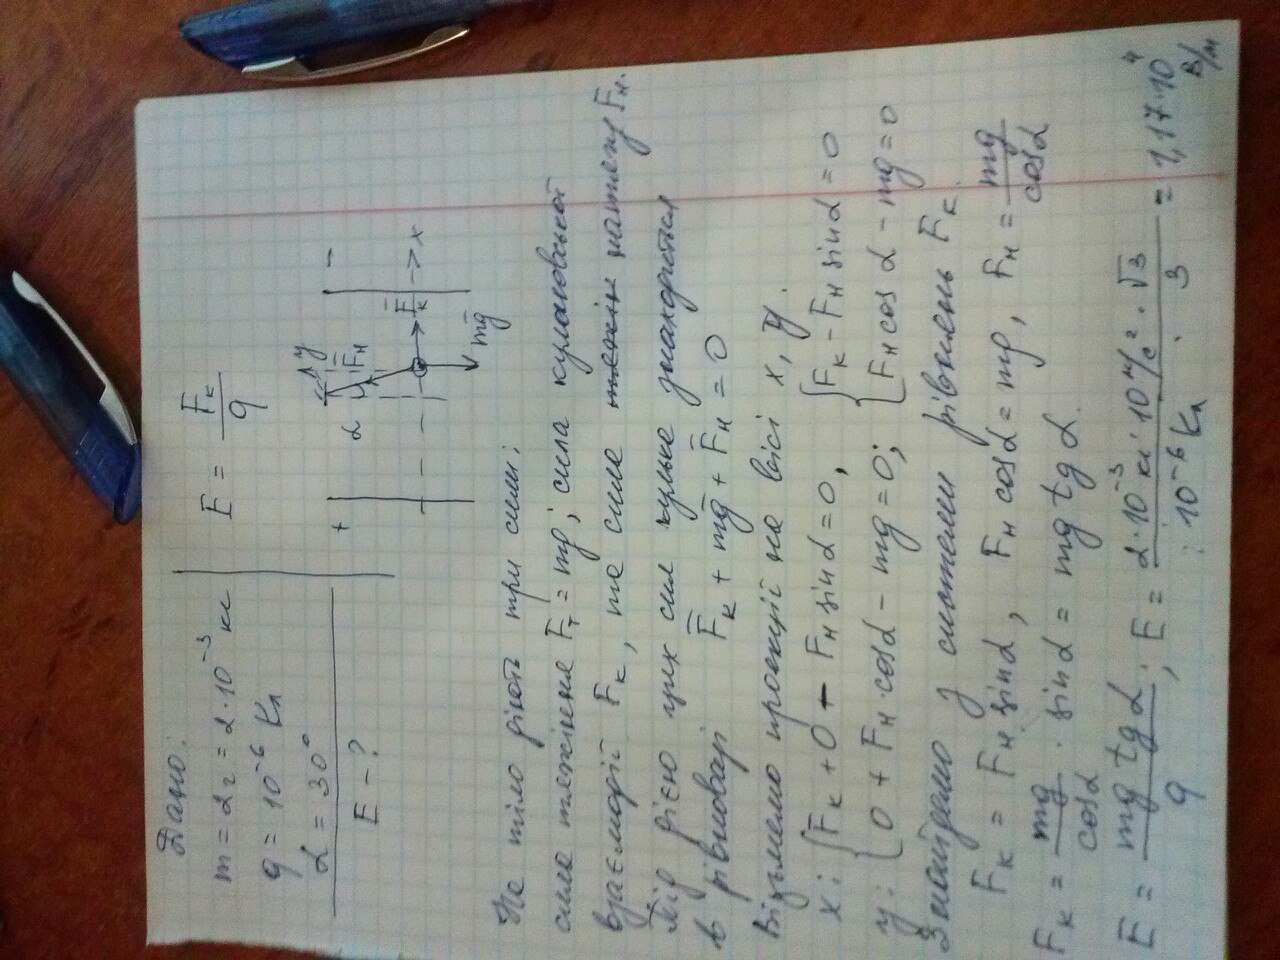 Дано:
m = 2г = 2·10⁻³ кг
q = 10⁻⁶ Кл
α = 30°
E - ?
E = Fк/q
+ −
α y Fн
Fк → x
mg
На тіло діють три сили:
сила тяжіння Fт = mg; сила кулонівської
взаємодії Fк, та сила натягу Fн.
Під дією цих сил кулька знаходиться
в рівновазі Fк + mg + Fн = 0
Візьмемо проекції на вісі x, y.
x: { Fк + 0 − Fн sinα = 0, { Fк − Fн sinα = 0
y: { 0 + Fн·cosα − mg = 0; { Fн cos α − mg = 0
Знайдемо з системи рівнень Fк.
Fк = Fн sinα, Fн cosα = mg, Fн = mg/cosα
Fк = mg/cosα · sinα = mg tg α.
E = mg tg α/q; E = 2·10⁻³ кг·10 м/с²·√3 / 3 : 10⁻⁶ Кл = 1,17·10⁴ В/м